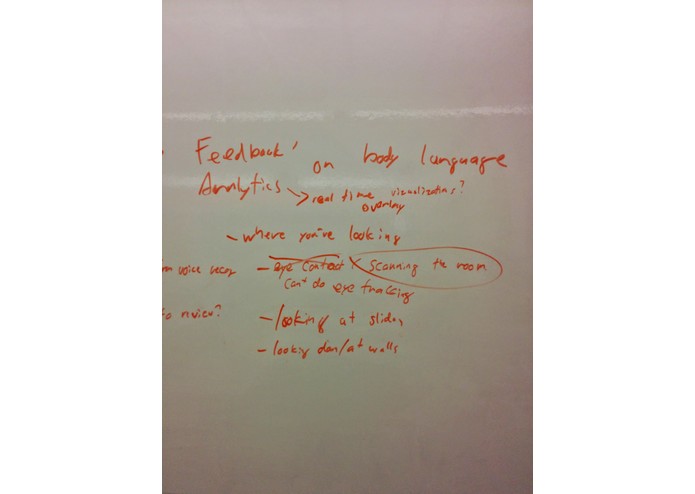 Feedback' on body language
Analytics -> real time visualizations?
overlay
- where you're looking
m voice recog - eye contact x scanning the room
Can't do eye tracking
to review?
- looking at slides
- looking down/at walls